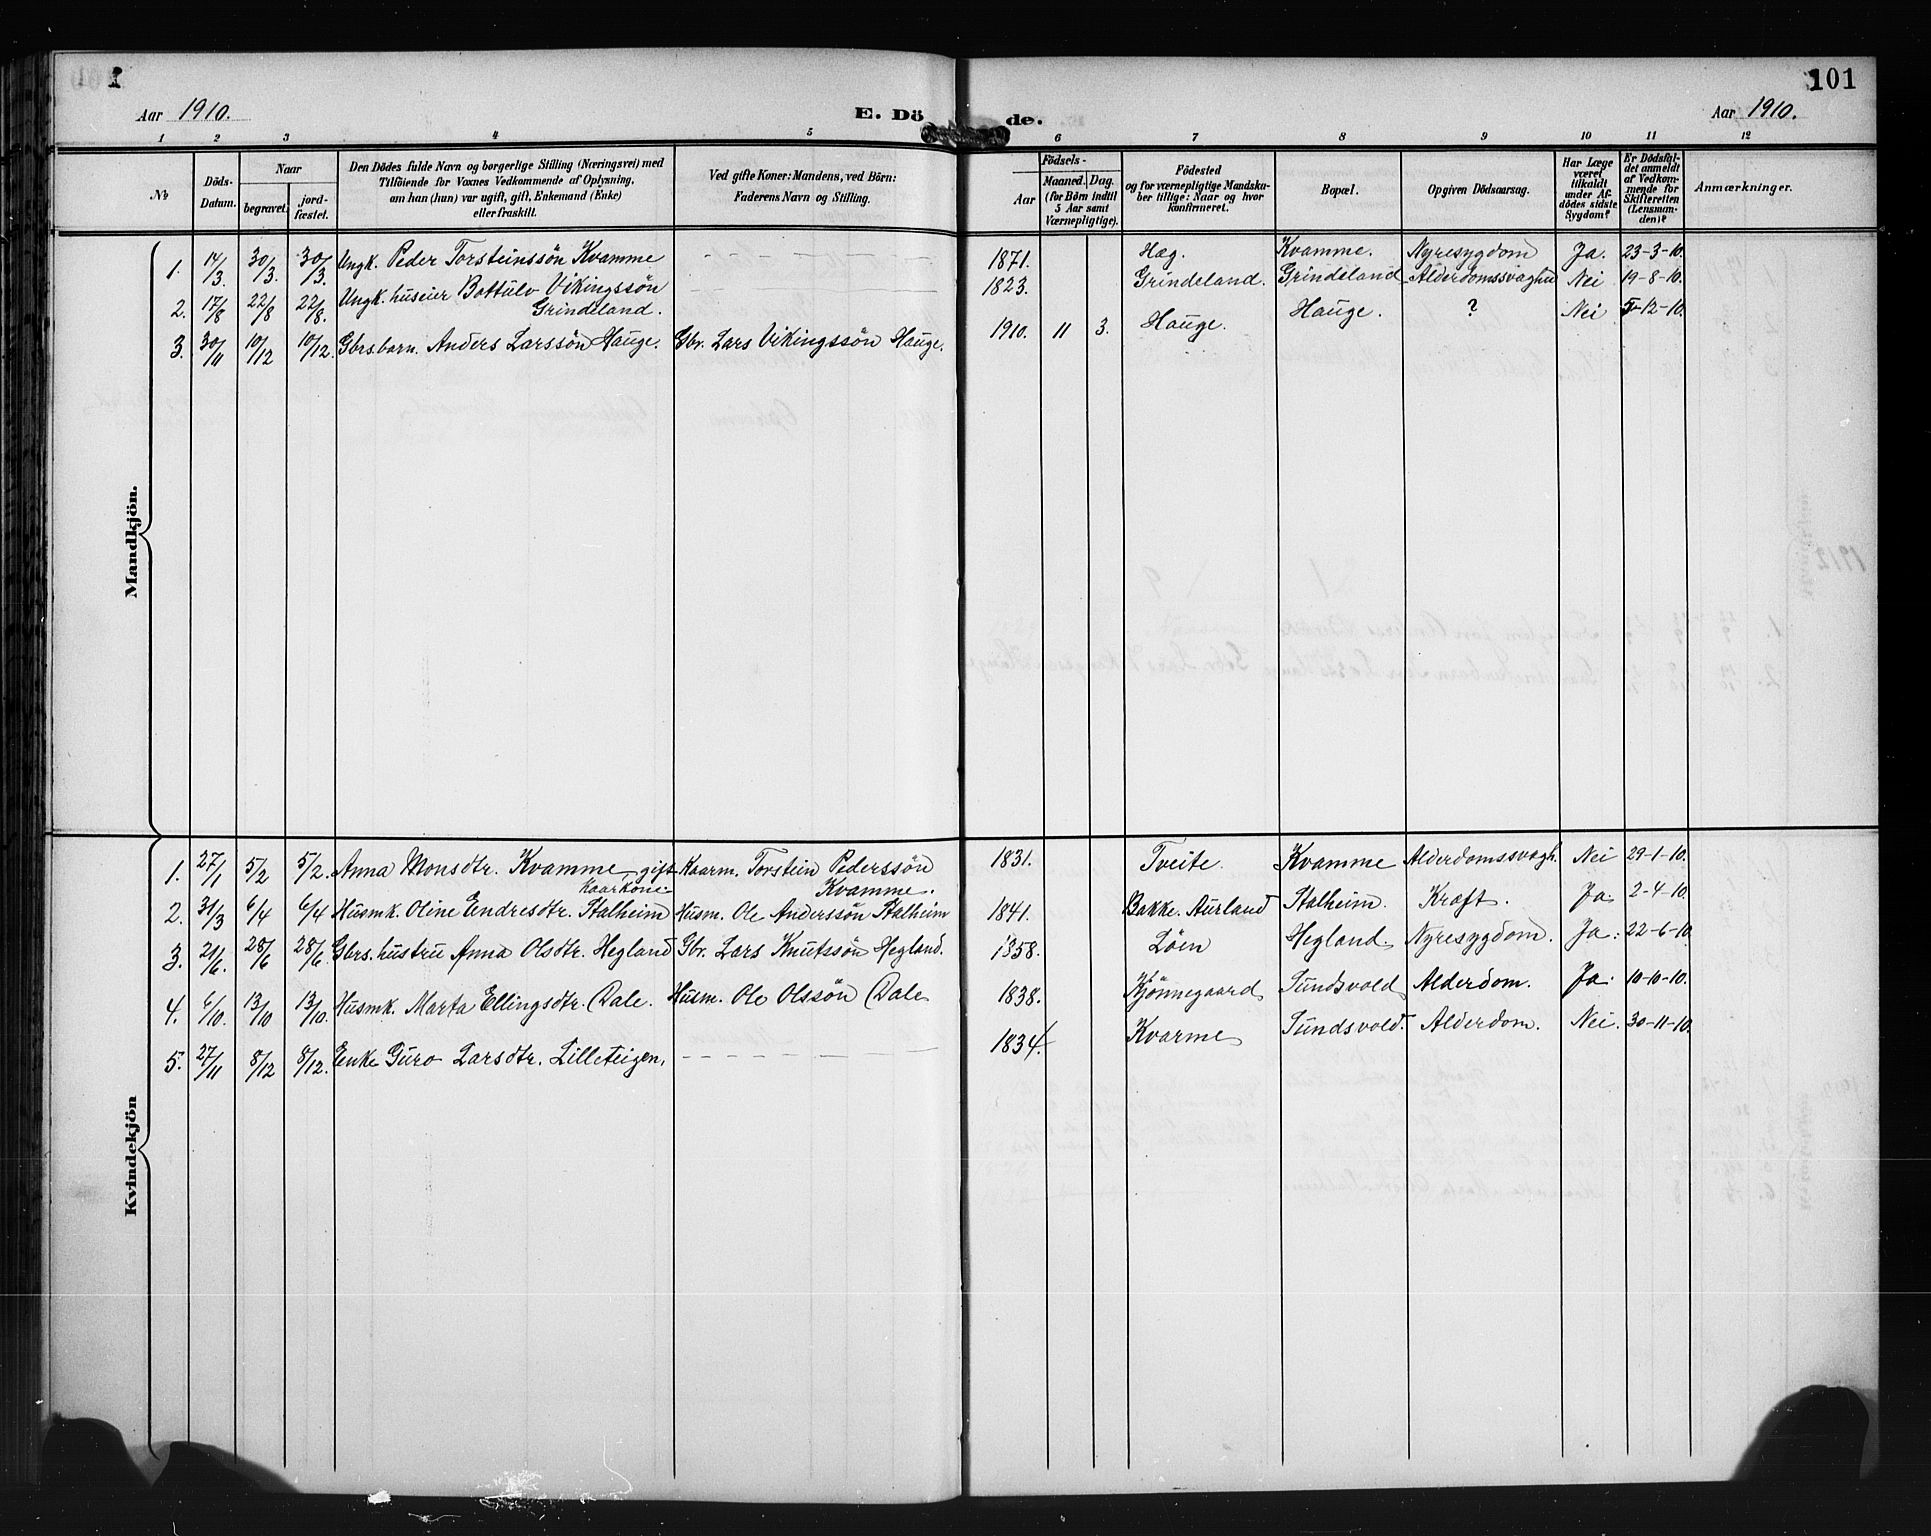 1
101
Aar 1910.
E. Döde.
Aar 1910.
1 2 3 4 5 6 7 8 9 10 11 12
No
Döds-Datum.
Naar
begravet.
jord-fæstet.
Den Dödes fulde Navn og borgerlige Stilling (Næringsvei) med
Tilföiende for Voxnes Vedkommende af Oplysning,
om han (hun) var ugift, gift, Enkemand (Enke)
eller fraskilt.
Ved gifte Koner: Mandens, ved Börn:
Faderens Navn og Stilling.
Födsels-
Aar
Maaned. Dag.
(for Börn indtil
5 Aar samt
Værnepligtige).
Födested
og for værnepligtige Mandska-
ber tillige: Naar og hvor
konfirmeret.
Bopæl.
Opgiven Dödsaarsag.
Har Læge
været
tilkaldt
under Af-
dödes sidste
Sygdom?
Er Dödsfal-
det anmeldt
af Vedkom-
mende for
Skifteretten
(Lensman-
den)?
Anmærkninger.
Mandkjön.
1. 14/3 30/3. 30/3. Ungk. Peder Torsteinssön Kvamme – – – – – 1871. Hæg. Kvamme. Nyresygdom Ja. 23-3-10.
2. 17/8 22/8 22/8. Ungk. huseier Bottulv Vikingssön – – – – – 1823. Grindeland. Grindeland Alderdomssvaghed Nei 19-8-10.
Grindeland.
3. 30/11 10/12 10/12. Gbrs.barn. Anders Larssön Hauge. Gbr. Lars Vikingssön Hauge. 1910. 11 3. Hauge. Hauge. ? Nei 5-12-10.
Kvindekjön
1. 27/1 5/2 5/2. Anna Monsdtr. Kvamme, gift Kaarm. Torstein Pederssön 1831. Tveite. Kvamme Alderdomssvagh. Nei 29-1-10.
kaarkone. Kvamme.
2. 31/3 6/4 6/4 Husmk. Oline Endresdtr. Stalheim Husm. Ole Anderssön Stalheim 1841. Bakke. Aurland Stalheim. Kræft. Ja 2-4-10.
3. 21/6. 28/6 28/6. Gbrs. hustru Anna Olsdtr. Hegland Gbr. Lars Knutssön Hegland. 1858. Löen Hegland. Nyresygdom. Ja: 22-6-10.
4. 6/10. 13/10 13/10. Husmk. Marta Ellingsdtr. Dale. Husm. Ole Olssön Dale 1838. Kjönnegaard Sundsvold Alderdom. Ja: 10-10-10.
5. 27/11 8/12 8/12. Enke Guro Larsdtr. Lilleteigen. – – – – – 1834. Kvarme Sundsvold. Alderdom. Nei. 30-11-10.